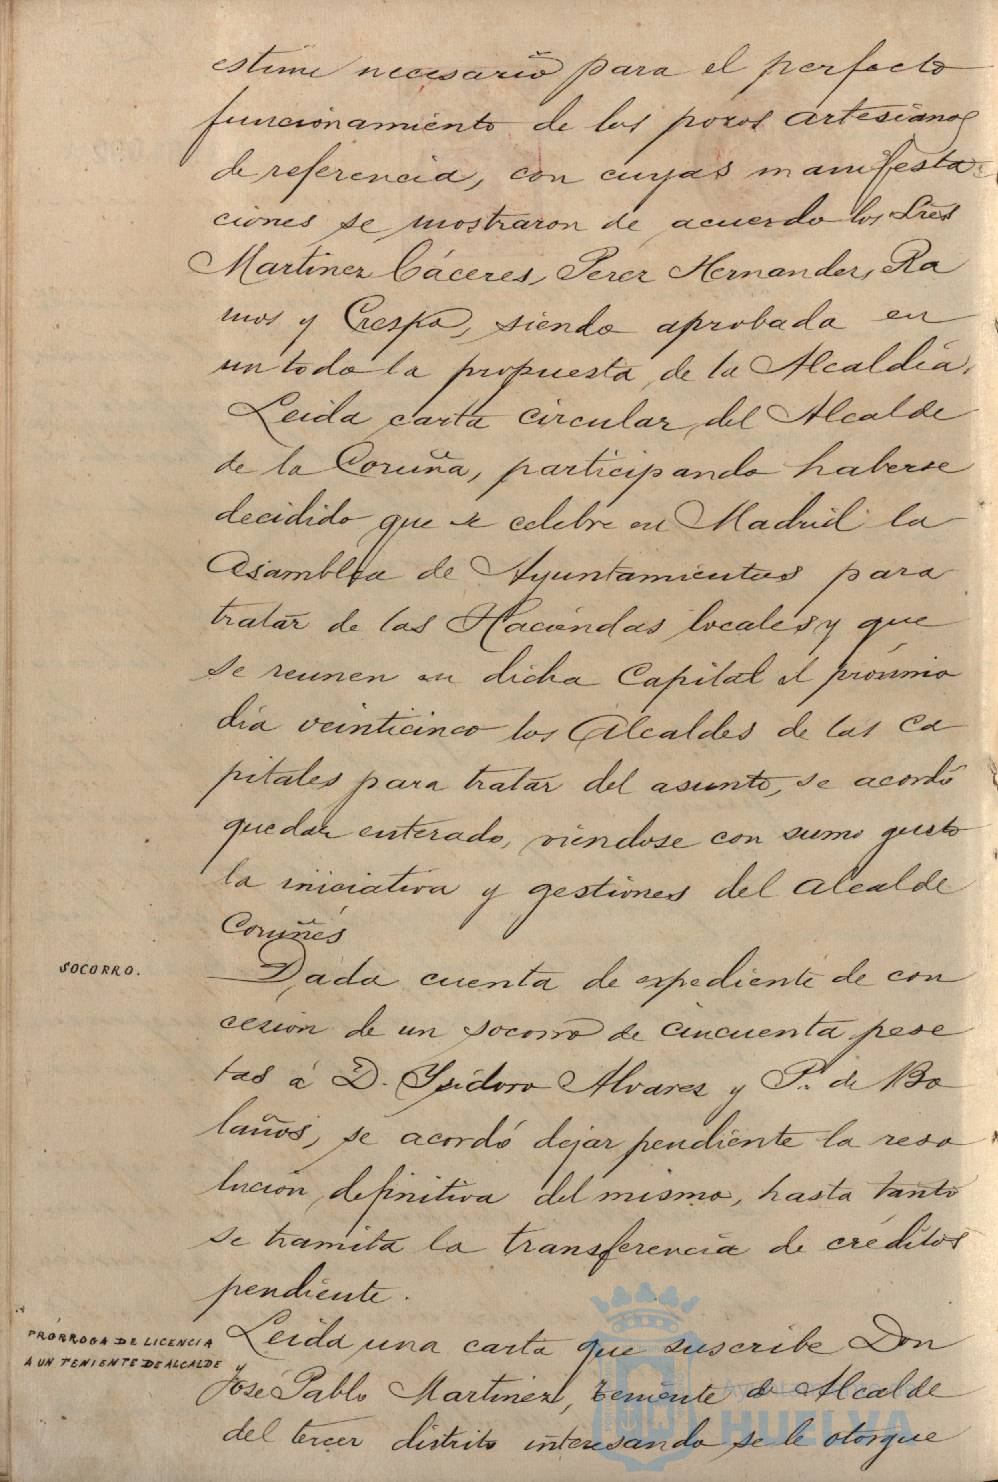 estime necesario para el perfecto
funcionamiento de los pozos artesianos
de referencia, con cuyas manifesta-
ciones se mostraron de acuerdo los Sres
Martinez Cáceres, Perez Hernandez, Ra
mos y Crespo, siendo aprobada en
un todo la propuesta de la Alcaldía.
Leida carta circular del Alcalde
de la Coruña, participando haberse
decidido que se celebre en Madrid la
Asamblea de Ayuntamientos para
tratar de las Haciendas locales y que
se reunen en dicha Capital el próximo
día veinticinco los Alcaldes de las ca
pitales para tratar del asunto, se acordó
quedar enterado, viendose con sumo gusto
la iniciativa y gestiones del alcalde
Coruñés
SOCORRO.
Dada cuenta de expediente de con
cesion de un socorro de cincuenta pese
tas á D. Ysidoro Alvarez y P. de Bo
laños, se acordó dejar pendiente la reso
lucion definitiva del mismo, hasta tanto
se tramita la transferencia de créditos
pendiente.
PRÓRROGA DE LICENCIA
A UN TENIENTE DE ALCALDE
Leida una carta que suscribe Don
José Pablo Martinez, teniente de Alcalde
del tercer distrito interesando se le otorgue
Ayuntamiento de
HUELVA